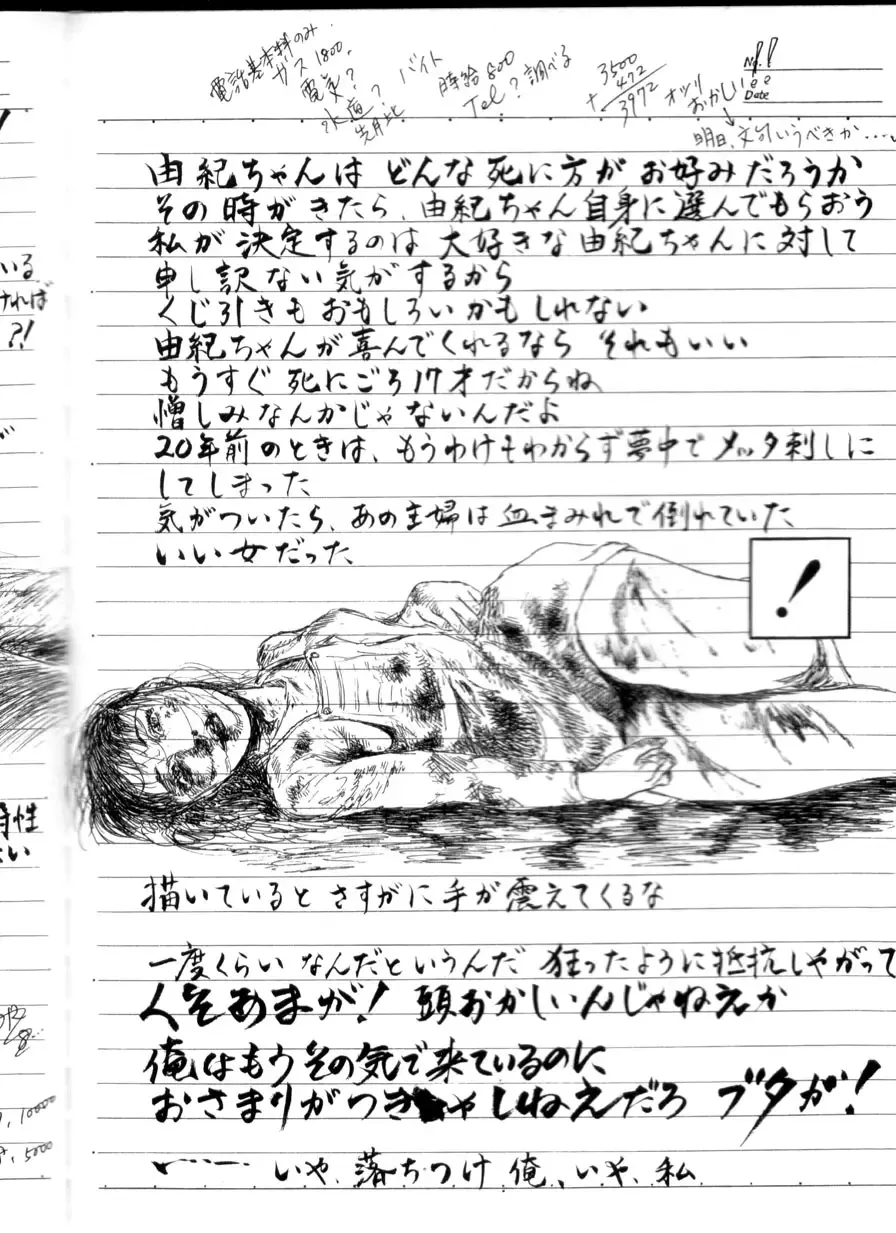 電話基本料のみ
ガス1800.
電気?
水道?
先月比
バイト
時給800
Tel?調べる
3500
472
+
3972
オツリ
おかしい
↓
明日、文句いうべきか....
No.
Date
由紀ちゃんは どんな死に方が お好みだろうか
その時がきたら、由紀ちゃん自身に選んでもらおう
私が決定するのは 大好きな由紀ちゃんに対して
申し訳ない気がするから
くじ引きも おもしろいかもしれない
由紀ちゃんが喜んでくれるなら それもいい
もうすぐ 死にごろ17才だからね
憎しみなんかじゃないんだよ
20年前のときは、もうわけもわからず夢中で メッタ刺しに
してしまった
気がついたら、あの主婦は血まみれで倒れていた
いい女だった
!
描いていると さすがに手が震えてくるな
一度くらい なんだというんだ 狂ったように抵抗しやがって
人そあまが! 頭おかしいんじゃねえか
俺はもうその気で来ているのに
おさまりがつきゃしねえだろ ブタが!
いや、落ちつけ 俺、いや、私
いる
ければ
?!
特性
10000
5000